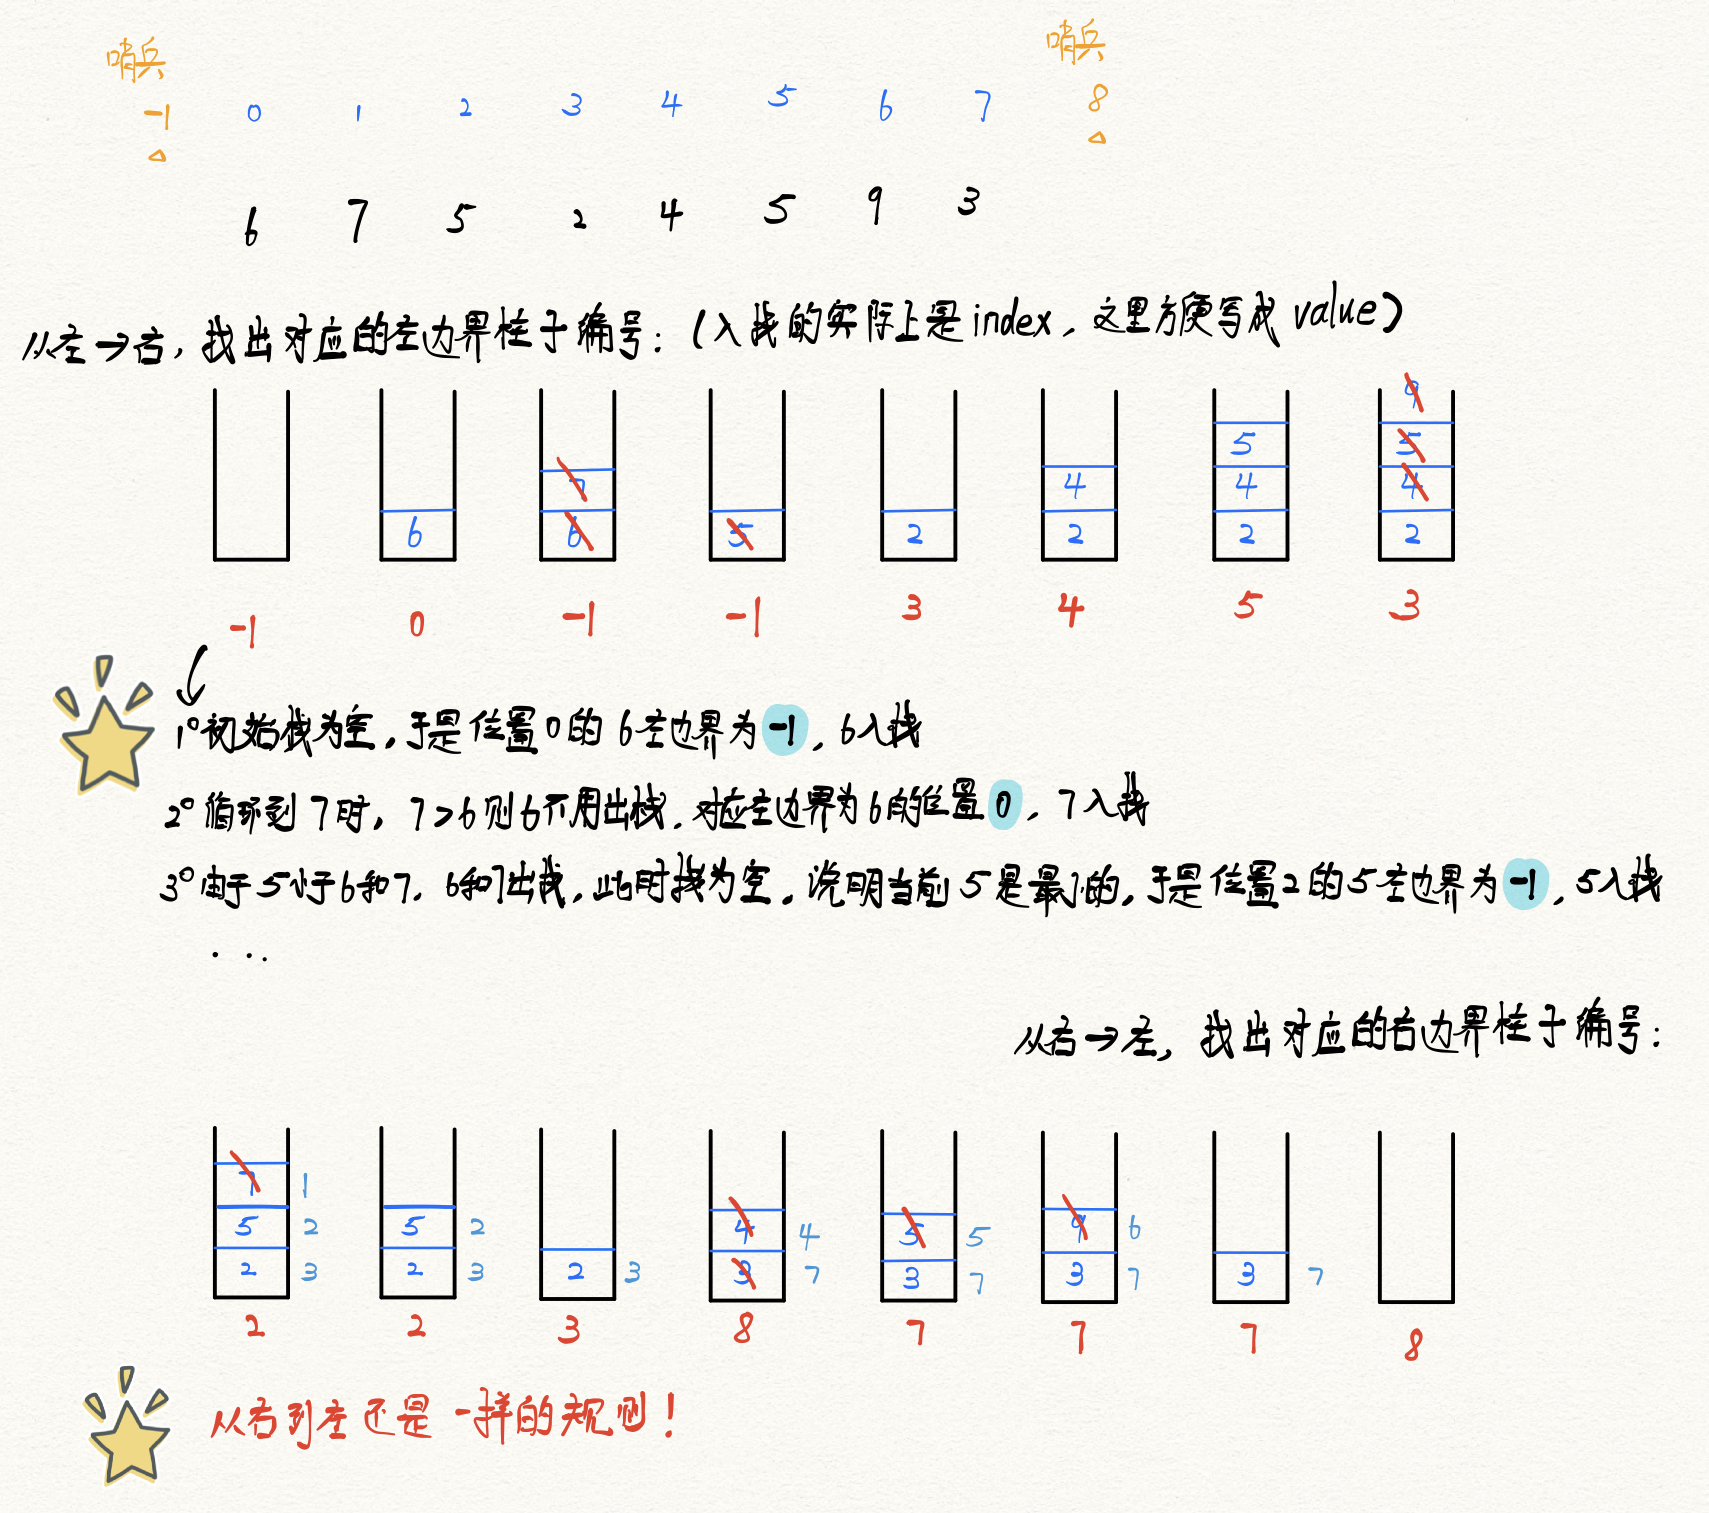 哨兵 哨兵
-1 0 1 2 3 4 5 6 7 8
6 7 5 2 4 5 9 3
从左→右,找出对应的左边界柱子编号:(入栈的实际上是index,这里方便写成 value)
9
5 5
7 4 4 4
6 6 5 2 2 2 2
-1 0 -1 -1 3 4 5 3
1°初始栈为空,于是位置0的6左边界为-1,6入栈
2°循环到7时,7>6则6不用出栈,对应左边界为6的位置0,7入栈
3°由于5小于6和7,6和7出栈,此时栈为空,说明当前5是最小的,于是位置2的5左边界为-1,5入栈
...
从右→左,找出对应的右边界柱子编号:
7 1
5 2 5 2 4 4 5 5 9 6
2 3 2 3 2 3 3 7 3 7 3 7 3 7
2 2 3 8 7 7 7 8
从右到左还是一样的规则!